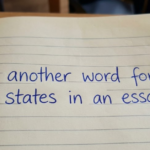 another word fo
states in an ess